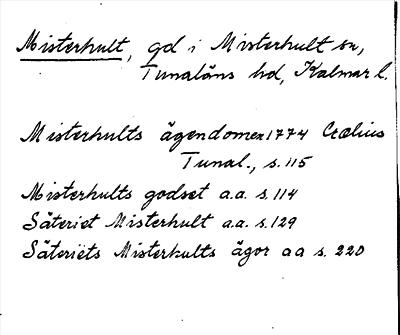 Misterhult, gd i Misterhult sn,
Tunaläns hd, Kalmar l.
Misterhults ägendomen 1774 Crælius
Tunal., s. 115
Misterhults godset a.a. s. 114
Säteriet Misterhult a.a. s. 129
Säteriets Misterhults ägor a a s. 220